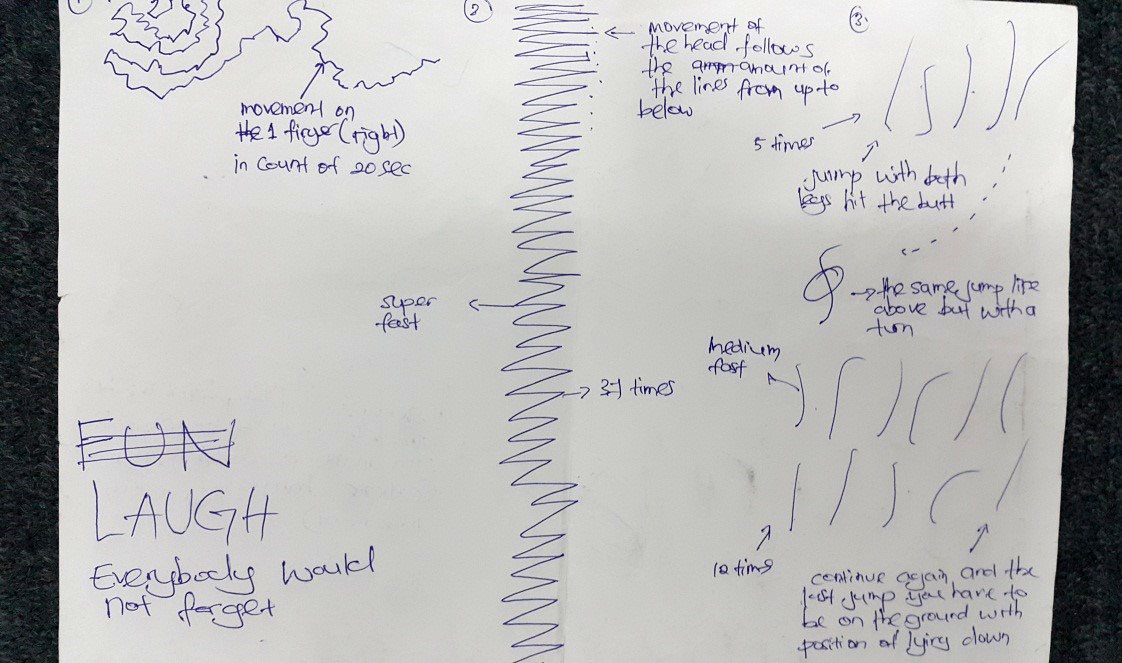 1.
movement on
the 1 finge (right)
in count of 20 sec
FUN
LAUGH
Everybody would
not forget
2
movement of
the head follows
the amount of
the lines from up to
below
super
fast
37 times
3.
5 times
jump with both
legs hit the butt
the same jump like
above but with a
turn
medium
fast
12 times
continue again, and the
last jump you have to
be on the ground with
position of lying down